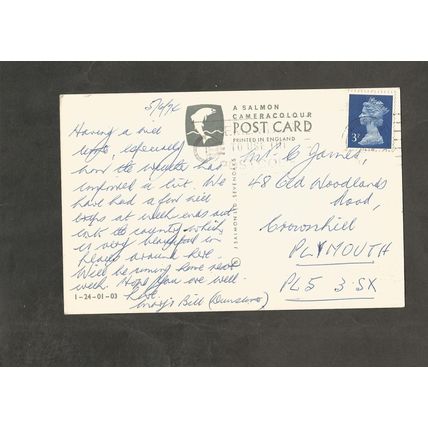 5/6/74
Having a nice
time, especially
now the weather has
improved a bit. We
have had a few nice
trips at week ends out
into the country which
is very beautiful in
places around here.
Will be coming home next
week. Hope you are well.
Love
Mary & Bill
1-24-01-03
A SALMON
CAMERACOLOUR
POST CARD
PRINTED IN ENGLAND
J SALMON LTD SEVENOAKS
3P
C James,
48 Old Woodlands
Road,
Crownhill
PLYMOUTH
PL5 3SX